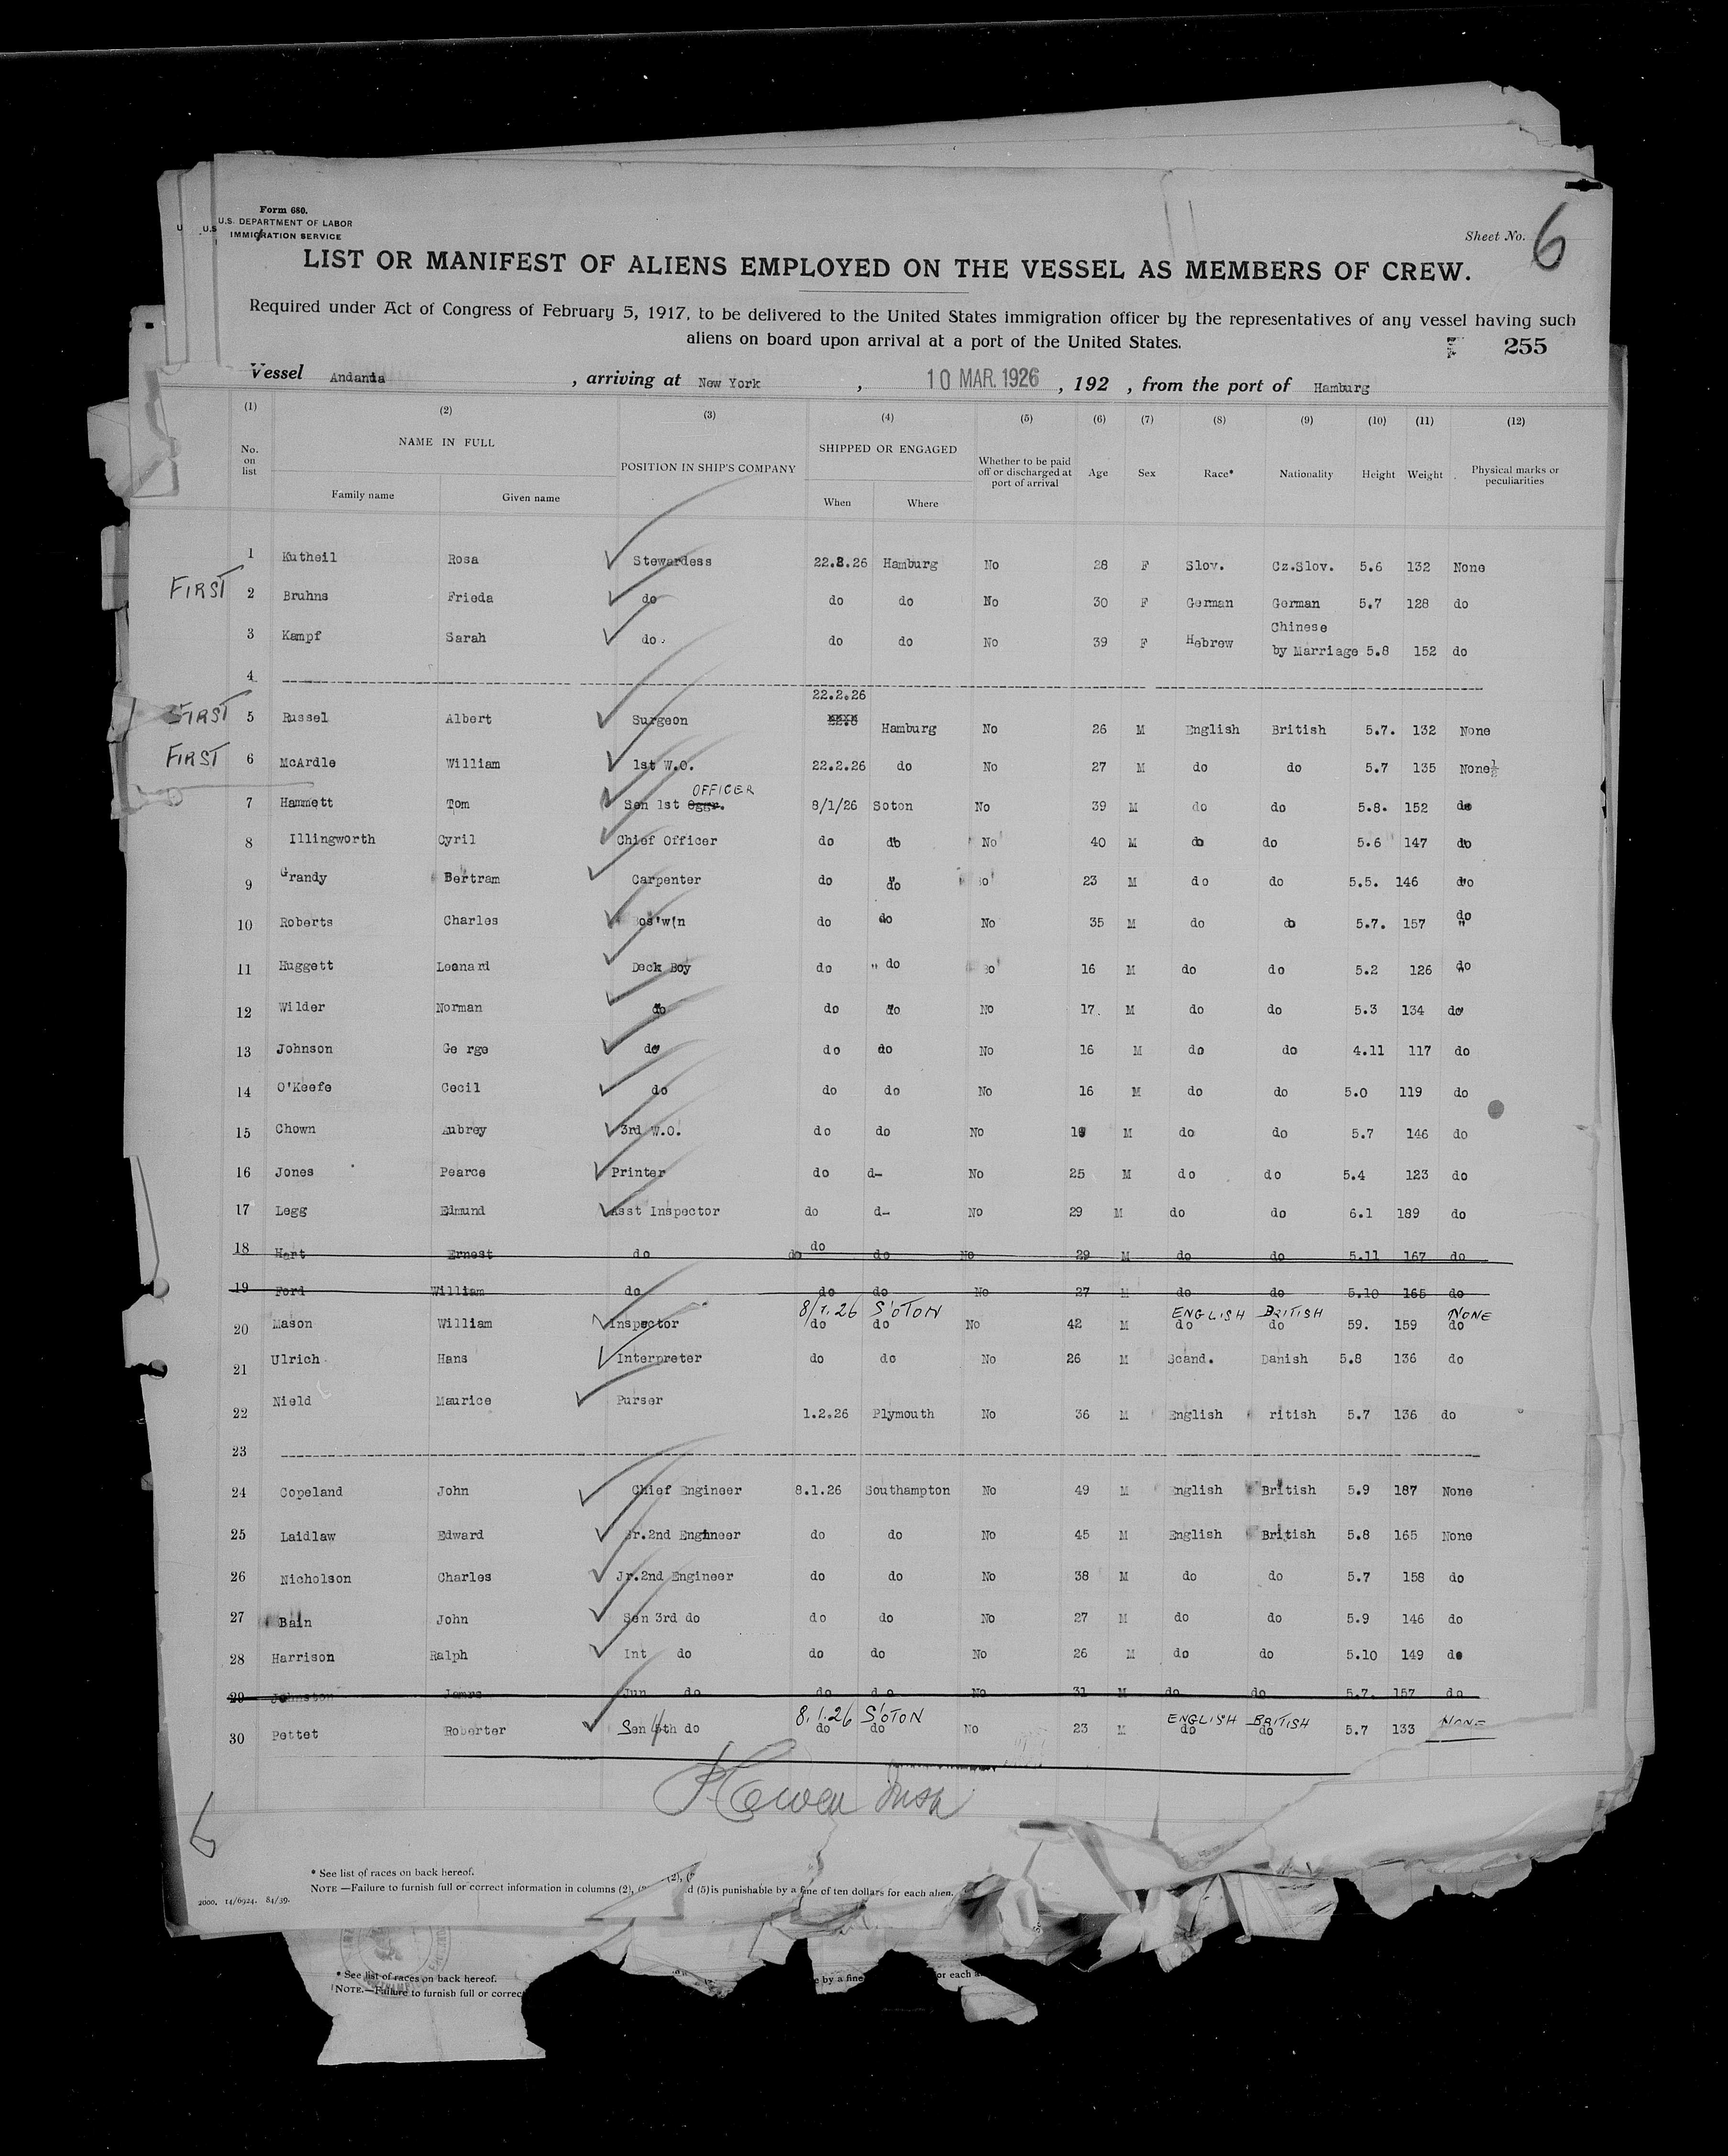 Form 680.
U.S. DEPARTMENT OF LABOR
IMMIGRATION SERVICE
Sheet No. 6
LIST OR MANIFEST OF ALIENS EMPLOYED ON THE VESSEL AS MEMBERS OF CREW.
Required under Act of Congress of February 5, 1917, to be delivered to the United States immigration officer by the representatives of any vessel having such
aliens on board upon arrival at a port of the United States.
255
Vessel Andania , arriving at New York , 10 MAR. 1926 , 192 , from the port of Hamburg
(1) (2) (3) (4) (5) (6) (7) (8) (9) (10) (11) (12)
No. on list NAME IN FULL POSITION IN SHIP'S COMPANY SHIPPED OR ENGAGED Whether to be paid off or discharged at port of arrival Age Sex Race* Nationality Height Weight Physical marks or peculiarities
Family name Given name When Where
1 Kutheil Rosa Stewardess 22.2.26 Hamburg No 28 F Slov. Cz.Slov. 5.6 132 None
FIRST 2 Bruhns Frieda do do do No 30 F German German 5.7 128 do
3 Kampf Sarah do. do do No 39 F Hebrew Chinese by Marriage 5.8 152 do
4
22.2.26
FIRST 5 Russel Albert Surgeon Hamburg No 26 M English British 5.7. 132 None
FIRST 6 McArdle William 1st W.O. 22.2.26 do No 27 M do do 5.7 135 None
OFFICER
7 Hammett Tom Sen 1st 8/1/26 Soton No 39 M do do 5.8. 152 do
8 Illingworth Cyril Chief Officer do do No 40 M do do 5.6 147 do
9 Grandy Bertram Carpenter do do 23 M do do 5.5. 146 do
10 Roberts Charles os'w'n do do No 35 M do do 5.7. 157 do
11 Huggett Leonard Deck Boy do " do 16 M do do 5.2 126 do
12 Wilder Norman do do do No 17. M do do 5.3 134 do
13 Johnson Ge rge do do do No 16 M do do 4.11 117 do
14 O'Keefe Cecil do do do No 16 M do do 5.0 119 do
15 Chown Aubrey 3rd W.O. do do No M do do 5.7 146 do
16 Jones Pearce Printer do d- No 25 M do do 5.4 123 do
17 Legg Edmund Asst Inspector do d- No 29 M do do 6.1 189 do
18 Hart Ernest do do do do No 29 M do do 5.11 167 do
19 Ford William do do do No 27 M do do 5.10 165 do
8/1.26 S'OTON ENGLISH BRITISH NONE
20 Mason William Inspector do do No 42 M do do 59. 159 do
21 Ulrich Hans Interpreter do do No 26 M Scand. Danish 5.8 136 do
22 Nield Maurice Purser 1.2.26 Plymouth No 36 M English ritish 5.7 136 do
23
24 Copeland John Chief Engineer 8.1.26 Southampton No 49 M English British 5.9 187 None
25 Laidlaw Edward Sr.2nd Engineer do do No 45 M English British 5.8 165 None
26 Nicholson Charles Jr.2nd Engineer do do No 38 M do do 5.7 158 do
27 Bain John Sen 3rd do do do No 27 M do do 5.9 146 do
28 Harrison Ralph Int do do do No 26 M do do 5.10 149 do
29 Johnston James Jun do do do No 31 M do do 5.7. 157 do
8.1.26 S'OTON ENGLISH BRITISH NONE
30 Pettet Roberter Sen 4th do do do No 23 M do do 5.7 133
6
* See list of races on back hereof.
NOTE —Failure to furnish full or correct information in columns (2), d (5) is punishable by a fine of ten dollars for each alien.
2000. 14/6924. 84/39.
* See list of races on back hereof.
NOTE.—Failure to furnish full or correc e by a fine or each a